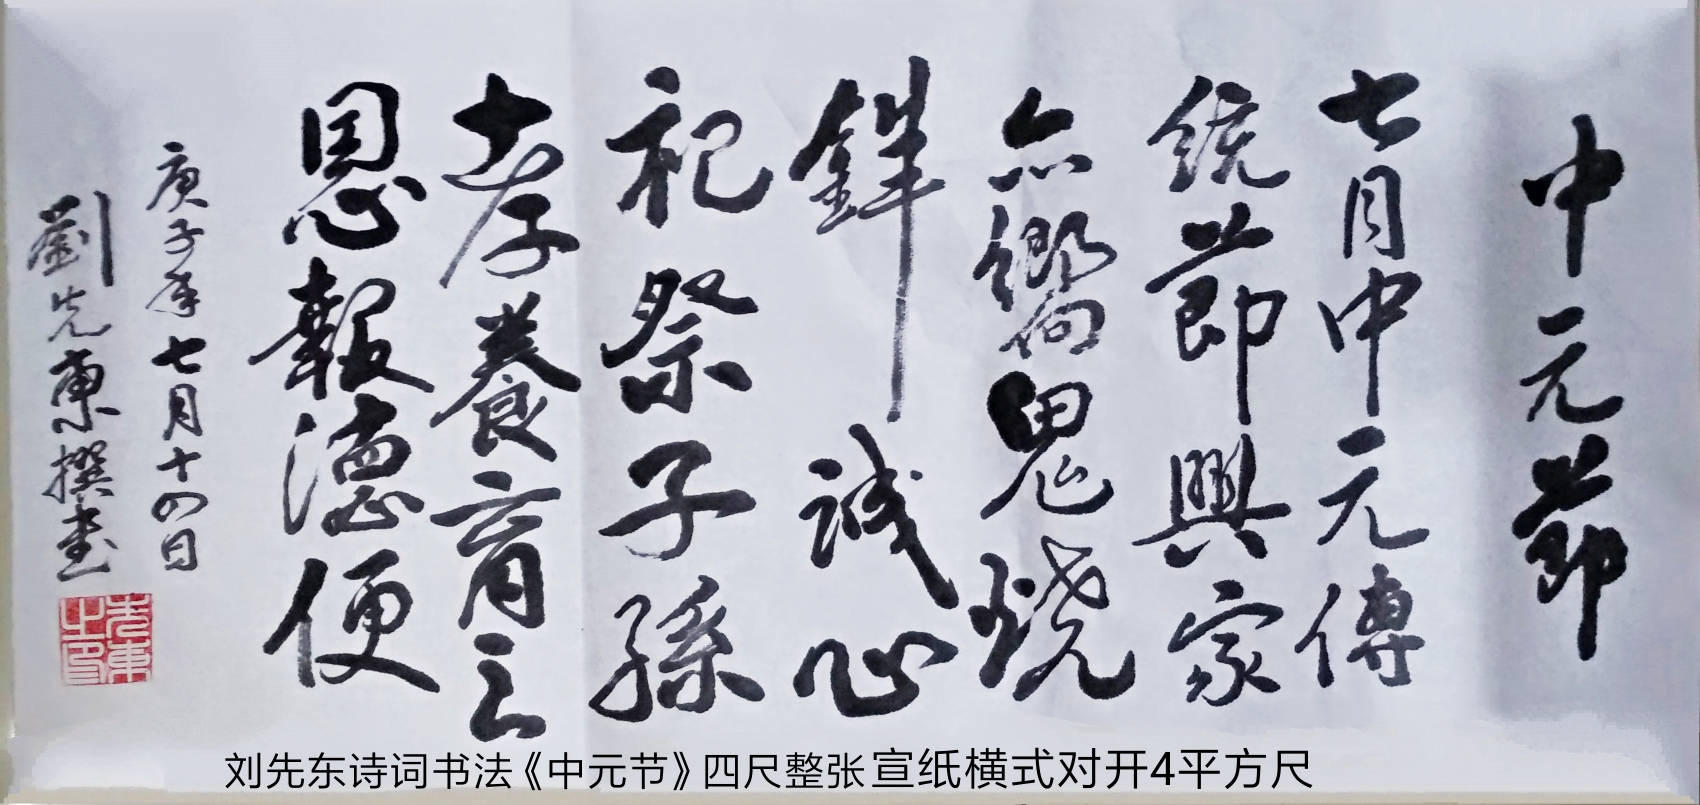 中元節
七月中元傳
統節興家
亦鄉向鬼燒
錢誠心
祀祭子孫
孝養育之
恩報德便
庚子年七月十四日
劉先東撰書
先東之印
刘先东诗词书法《中元节》四尺整张宣纸横式对开4平方尺